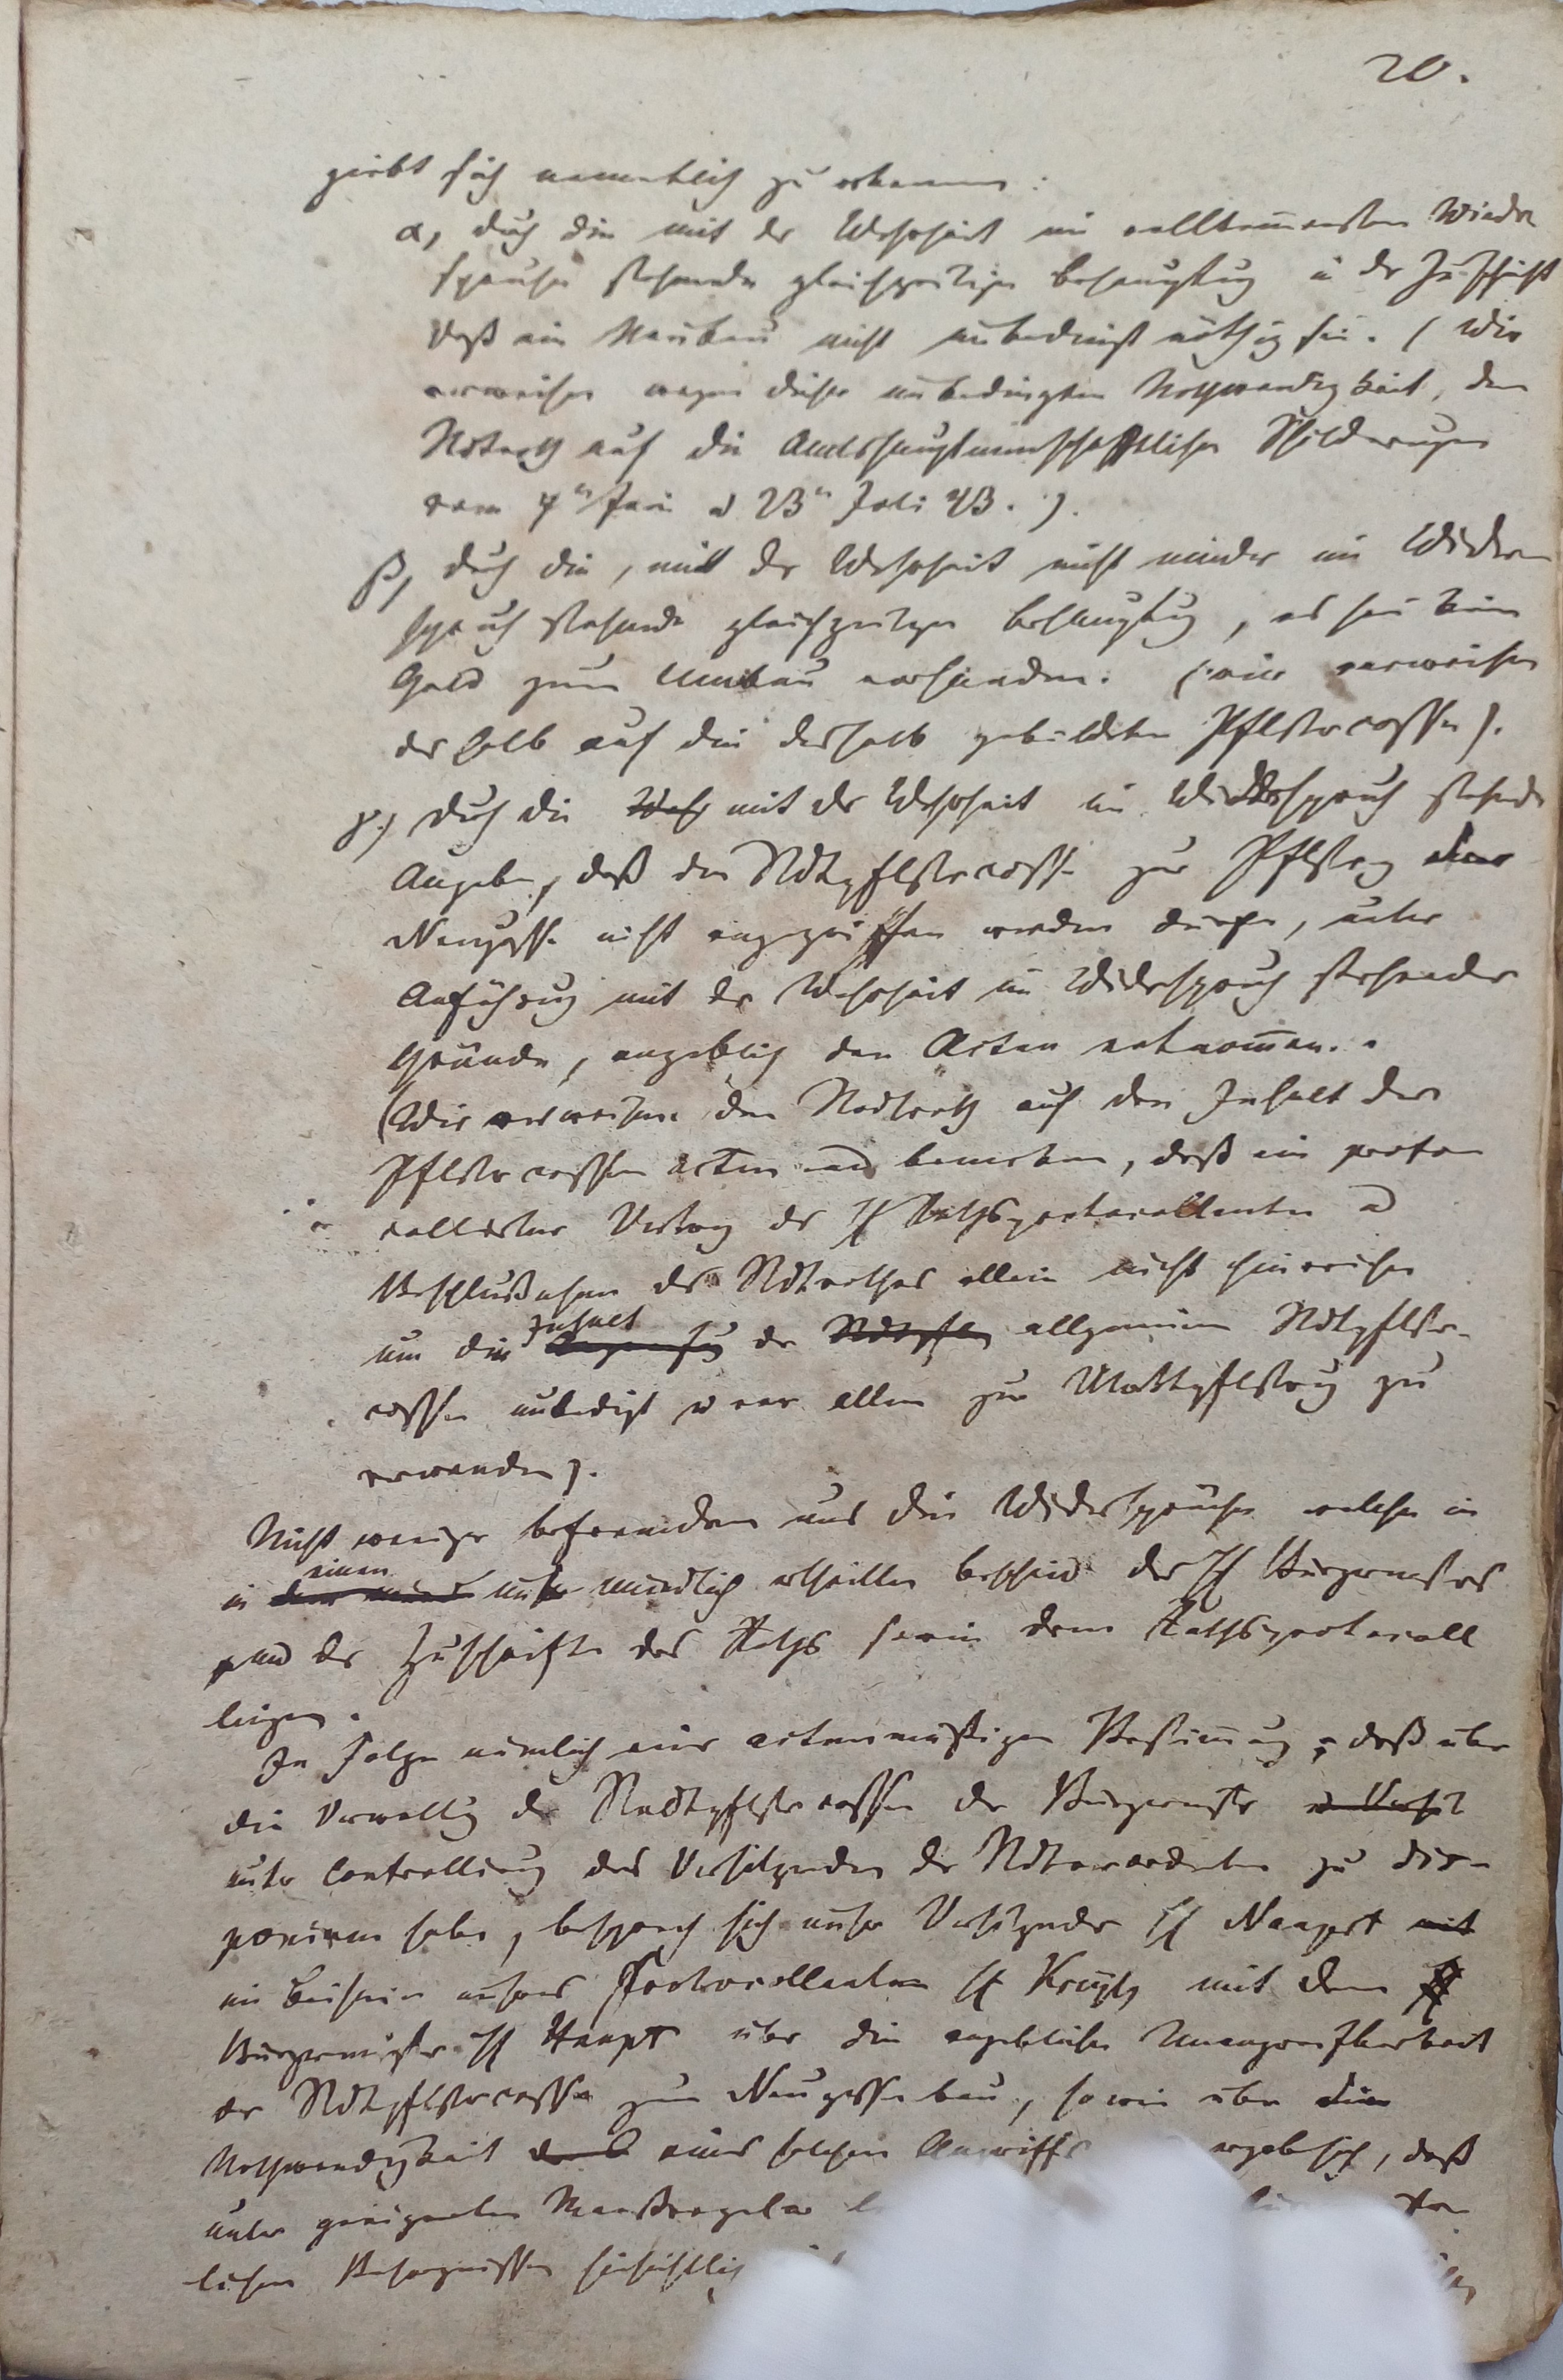 20.
giebt sich namentlich zu erkennen:
α, durch die mit der Wahrheit im vollkommensten Wieder
spruche stehende gleichzeitige Behauptung in der Zuschrift
daß ein Neubau nicht unbedingt nöthig sei. (Wir
verweisen wegen dieser unbedingten Nothwendigkeit, den
Stdtrath auf die Amtshauptmannschaftlichen Schilderungen
vom 7n Juni u 23n Juli 43.).
β, durch die, mit der Wahrheit nicht minder im Wider
spruch stehende gleichzeitige Behauptung, es sei kein
Geld zum Umbau vorhanden. (wir verweisen
deshalb auf die deshalb gebildete Pflstercasse).
γ.) durch die mit der Wahrheit im Widerspruch stehende
Angabe, daß die Stdtpflstercasse zur Pflstrg der
Neugasse nicht angegriffen werden dürfe, unter
Anführung mit der Wahrheit im Widerspruch stehender
Gründe, angeblich den Acten entnommen.
(Wir verweisen den Stadtrath auf den Inhalt der
Pflstercassen acten und bemerken, daß ein proto
collirter Vortrag des H Rathsprotocollanten u
Beschlußnahme des Stdtrathes allein nicht hinreichen
um den Inhalt der allgemeinen Stdtpflster
cassen unbedingt u vor allem zur Marktpflstrg zu
verwenden).
Nicht weniger befremden uns die Widersprüche welche in
in einem uns mündlich ertheilten Bescheid des H Bürgermeisters
und der Zuschrift des Raths sowie dem Rathsprotocoll
liegen.
In Folge nämlich einer actenmäßigen Bestimmung, daß über
die Verwaltg der Stadtpflstercassen der Bürgermstr
unter Controllirung des Vorsitzenden der Stdtverordneten zu dis
poniren habe, besprach sich unser Vorsitzender H Naupert
im Beisein unseres Protocollanten H mit dem
Bürgermeister H Haupt über die angebliche Unangreifbarkeit
der Stdtpflstercasse zum Neugassenbau, sowie über die
Nothwendigkeit eines solchen Angriffs ergab sich, daß
unter geeigneten Maaßregeln
lichen Besorgnissen hinsichtlich